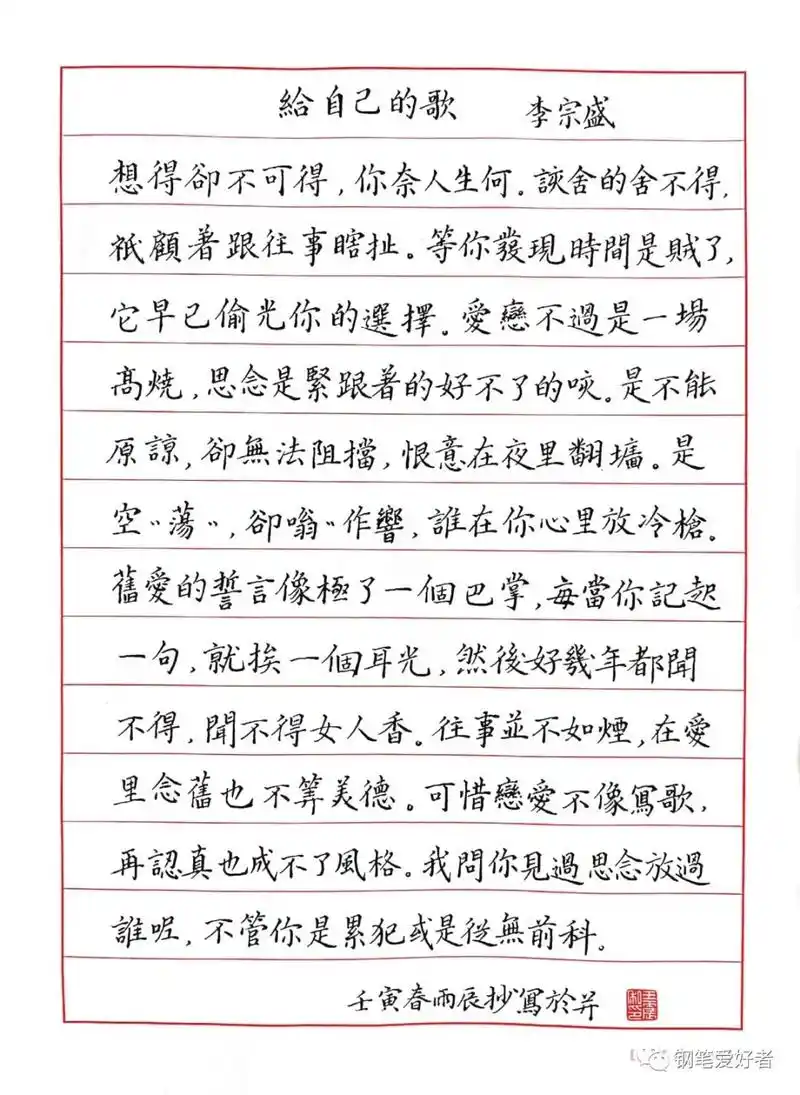 給自己的歌 李宗盛
想得卻不可得，你奈人生何。該舍的舍不得，
祇顧著跟往事瞎扯。等你發現時間是賊了，
它早已偷光你的選擇。愛戀不過是一場
高燒，思念是緊跟著的好不了的咳。是不能
原諒，卻無法阻擋，恨意在夜里翻墻。是
空〃蕩〃，卻嗡〃作響，誰在你心里放冷槍。
舊愛的誓言像極了一個巴掌，每當你記起
一句，就挨一個耳光，然後好幾年都聞
不得，聞不得女人香。往事並不如煙，在愛
里念舊也不筭美德。可惜戀愛不像寫歌，
再認真也成不了風格。我問你見過思念放過
誰呢，不管你是累犯或是從無前科。
壬寅春雨辰抄寫於并
钢笔爱好者